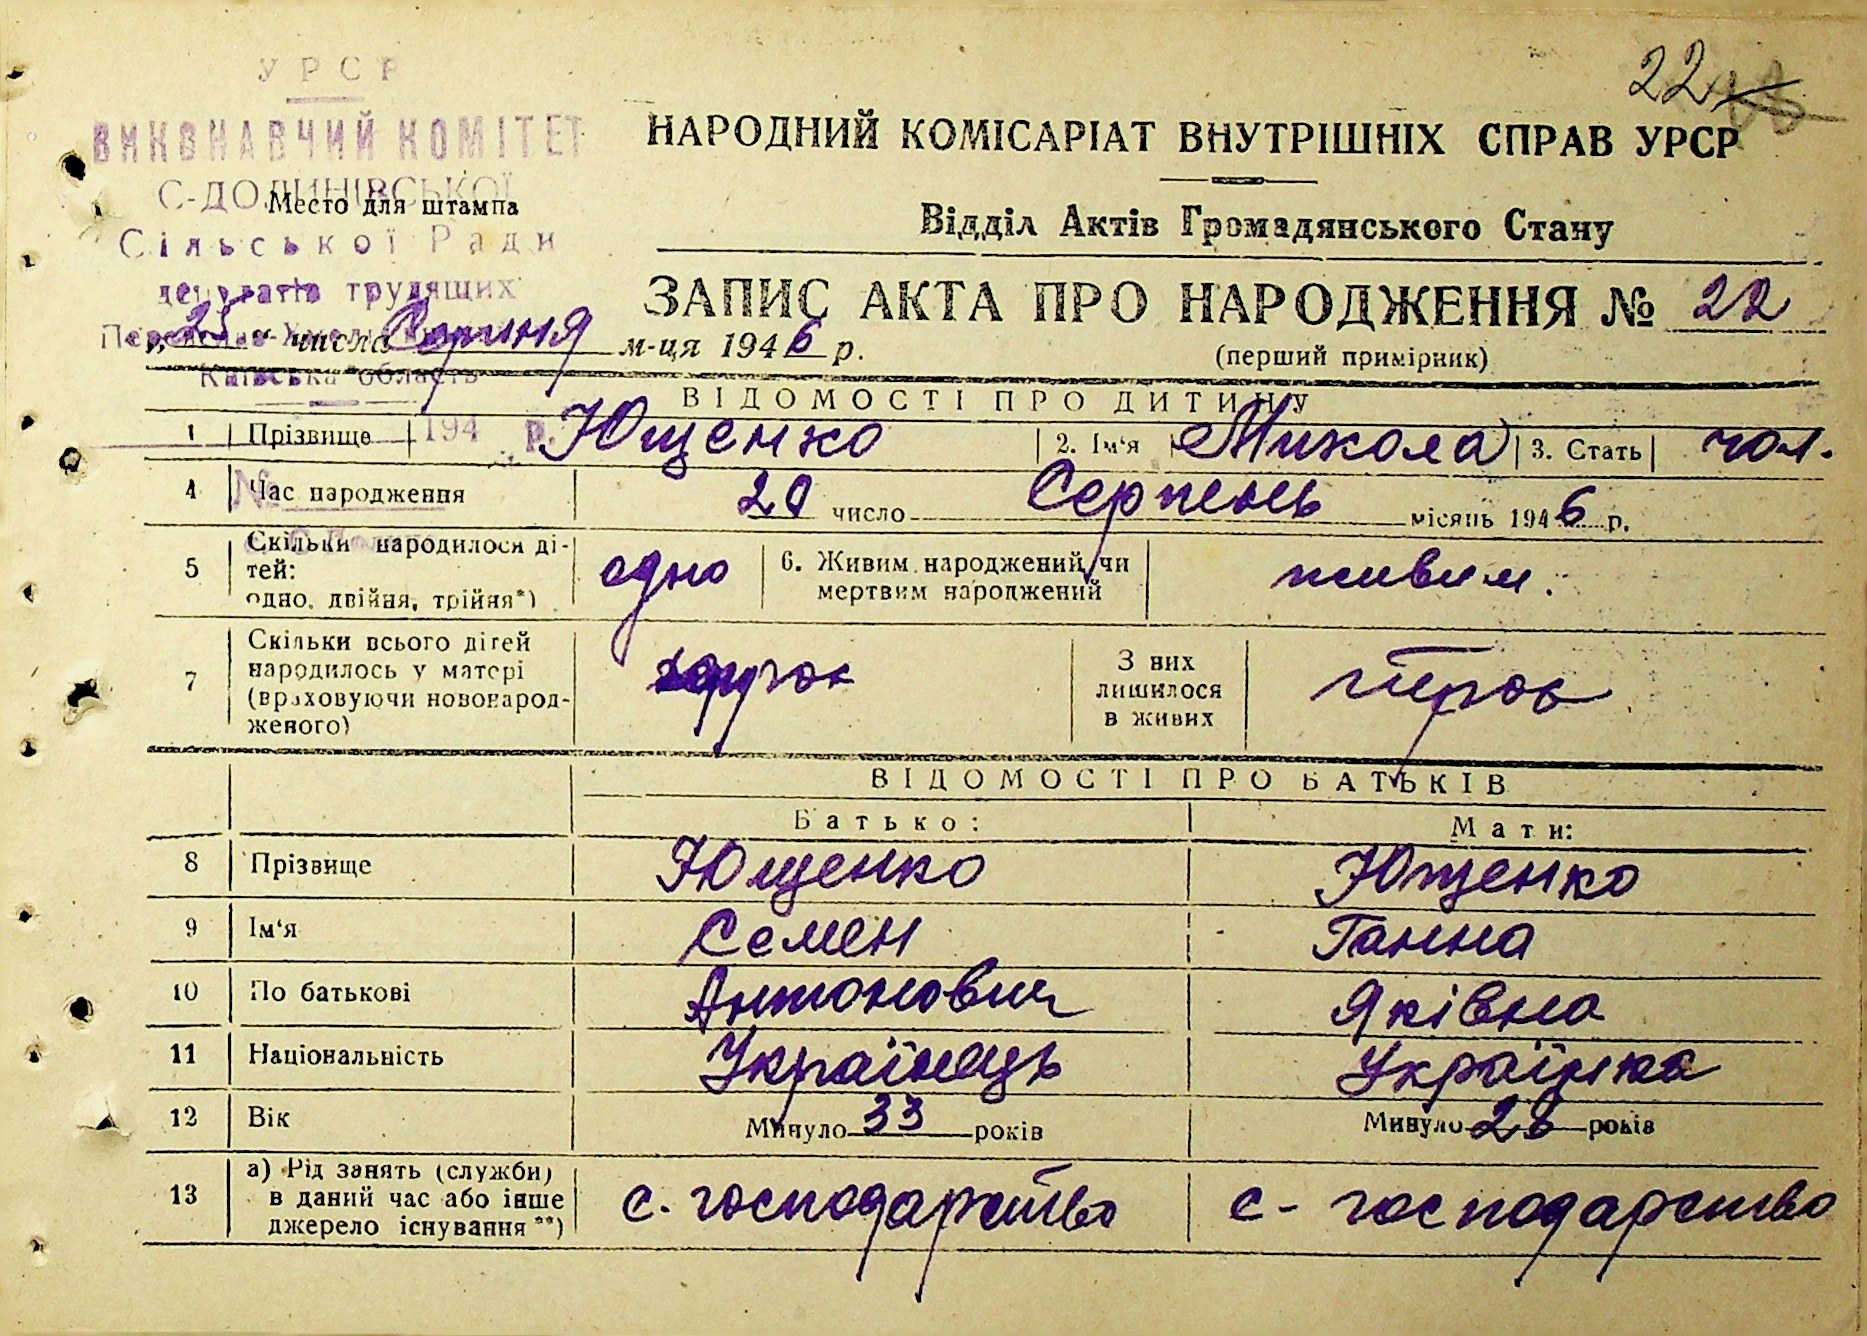 УРСР
22
ВИКОНАВЧИЙ КОМІТЕТ
НАРОДНИЙ КОМІСАРІАТ ВНУТРІШНІХ СПРАВ УРСР
С-ДОЛИНІВСЬКОЇ
Место для штампа
Сільської Ради
Відділ Актів Громадянського Стану
депутатів трудящих
ЗАПИС АКТА ПРО НАРОДЖЕННЯ № 22
(перший примірник)
„25“ числа Серпня м-ця 1946 р.
Київська область
194 р.
№
ВІДОМОСТІ ПРО ДИТИНУ
1 Прізвище Ющенко 2. Ім'я Микола 3. Стать чол.
4 Час народження 20 число Серпень місяць 1946 р.
5 Скільки народилося ді-
тей:
одно, двійня, трійня*) одно 6. Живим народжений, чи
мертвим народжений живим.
7 Скільки всього дітей
народилось у матері
(враховуючи новонарод-
женого)
З них
лишилося
в живих
ВІДОМОСТІ ПРО БАТЬКІВ
Батько: Мати:
8 Прізвище Ющенко Ющенко
9 Ім'я Семен Ганна
10 По батькові Антонович Яківна
11 Національність Українець Українка
12 Вік Минуло 33 років Минуло 28 років
13 а) Рід занять (служби)
в даний час або інше
джерело існування**) с. господарство с-господарство